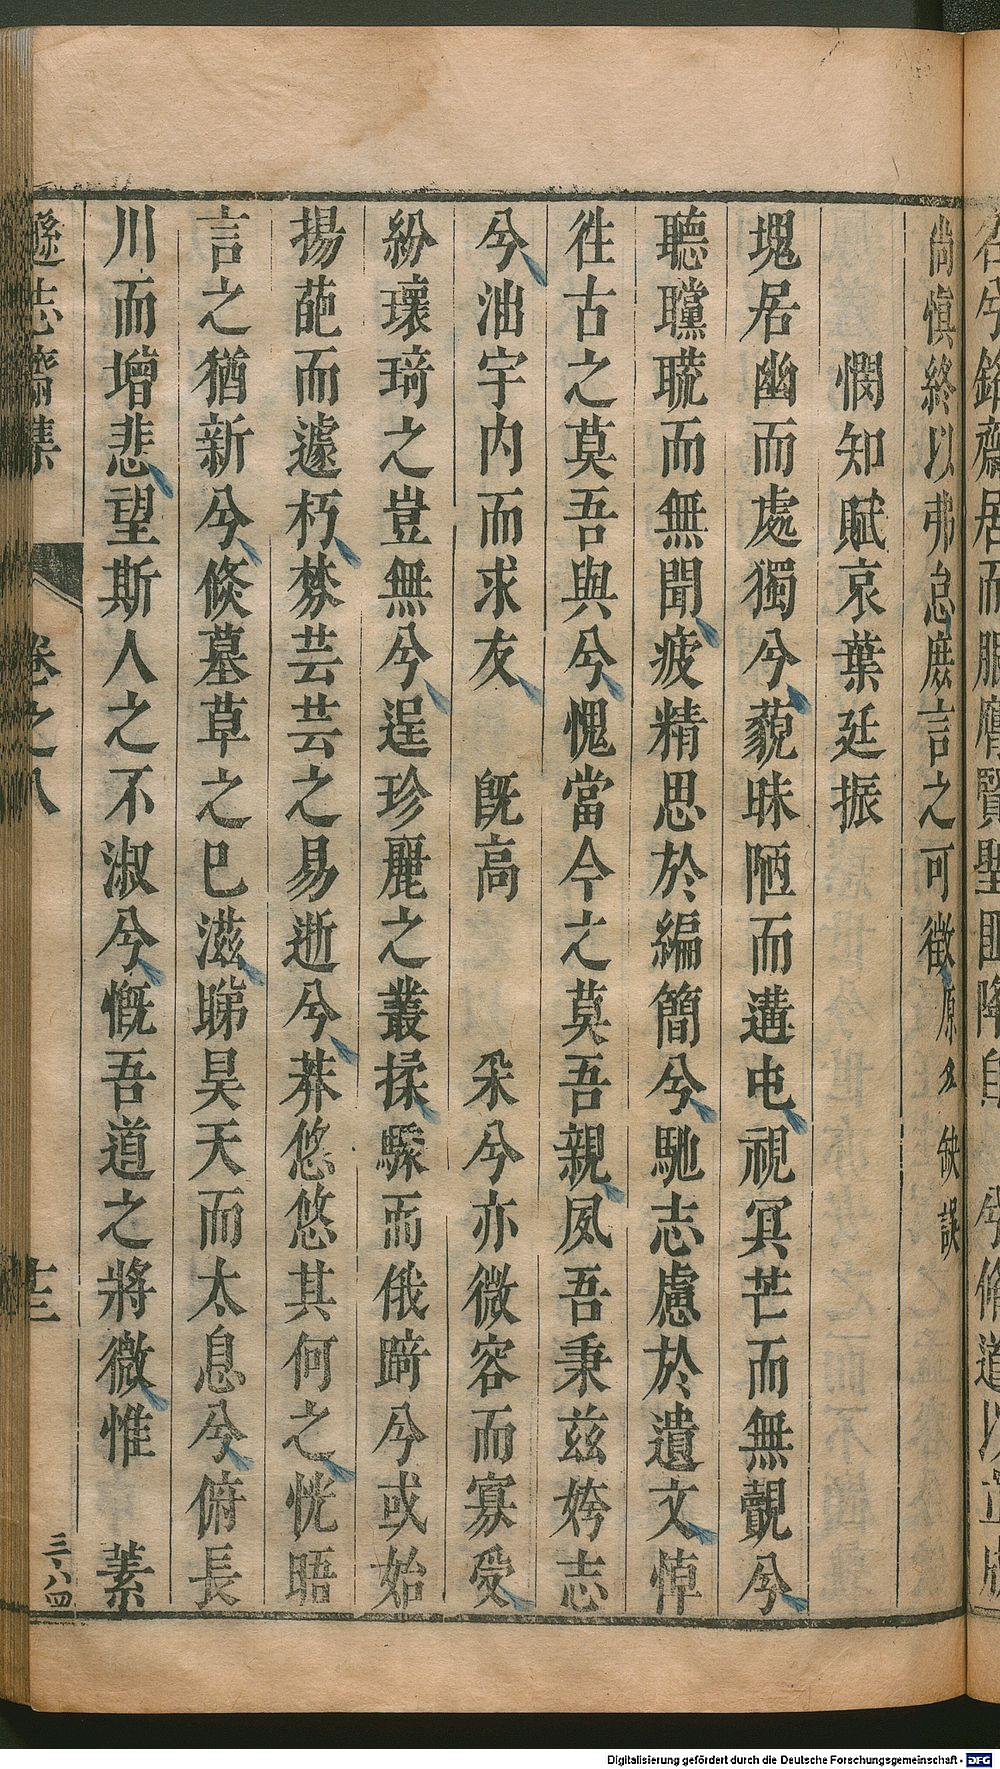 尚慎終以弗怠庶言之可徵原本缺誤
憫知賦哀葉廷振
塊居幽而處獨兮藐昧陋而遘屯視冥芒而無覩兮
聽矘䁖而無聞疲精思於編簡兮馳志慮於遺文悼
徃古之莫吾與兮愧當今之莫吾親夙吾秉兹姱志
兮泏宇内而求友　旣高　　罙兮亦微容而寡受
紛瓌琦之豈無兮逞珍麗之叢揉驟而俄踦兮或始
揚葩而遽朽棼芸芸之易逝兮莽悠悠其何之恍晤
言之猶新兮倐墓草之巳滋睇昊天而太息兮俯長
川而增悲望斯人之不淑兮慨吾道之將微惟　蓁
遜志齋集
卷之八
三八四
Digitalisierung gefördert durch die Deutsche Forschungsgemeinschaft - DFG